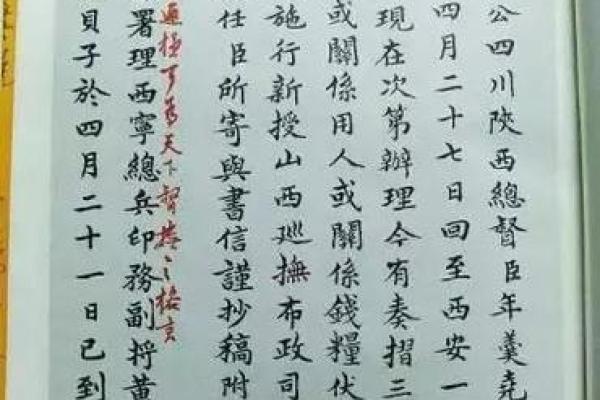 公四川陝西總督臣年羹堯
四月二十七日回至西安一
現在次第辦理今有奏摺三
或關係用人或關係錢糧伏
施行新授山西巡撫布政司
任臣所寄與書信謹抄稿附
通極可為天下督撫之格言
署理西寧總兵印務副將黃
貝子於四月二十一日已到